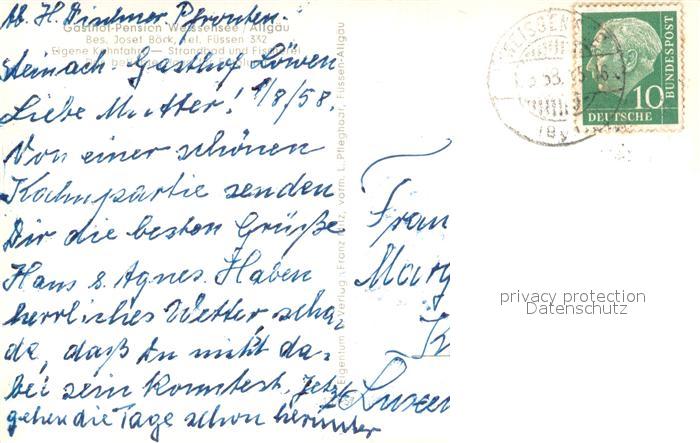 Ab. H. Dischner Pfronten.
Gasthof-Pension Weissensee / Allgäu
Bes. Josef Börk, Tel. Füssen 332
Eigene Kahnfahrt — Strandbad und Fischerei
Steinach Gasthof Löwen
Liebe Mutter! 1/8/58.
Von einer schönen
Kahnpartie senden
Dir die besten Grüße
Hans & Agnes. Haben
herrliches Wetter, scha-
de, daß du nicht da-
bei sein konntest. Jetzt
gehen die Tage schon herunter
Eigentum u. Verlag: Franz Milz, vorm. L. Pfleghaar, Füssen-Allgäu
Frau
Marg
Luxem
WEISSENSEE
58
10
DEUTSCHE
BUNDESPOST
privacy protection
Datenschutz